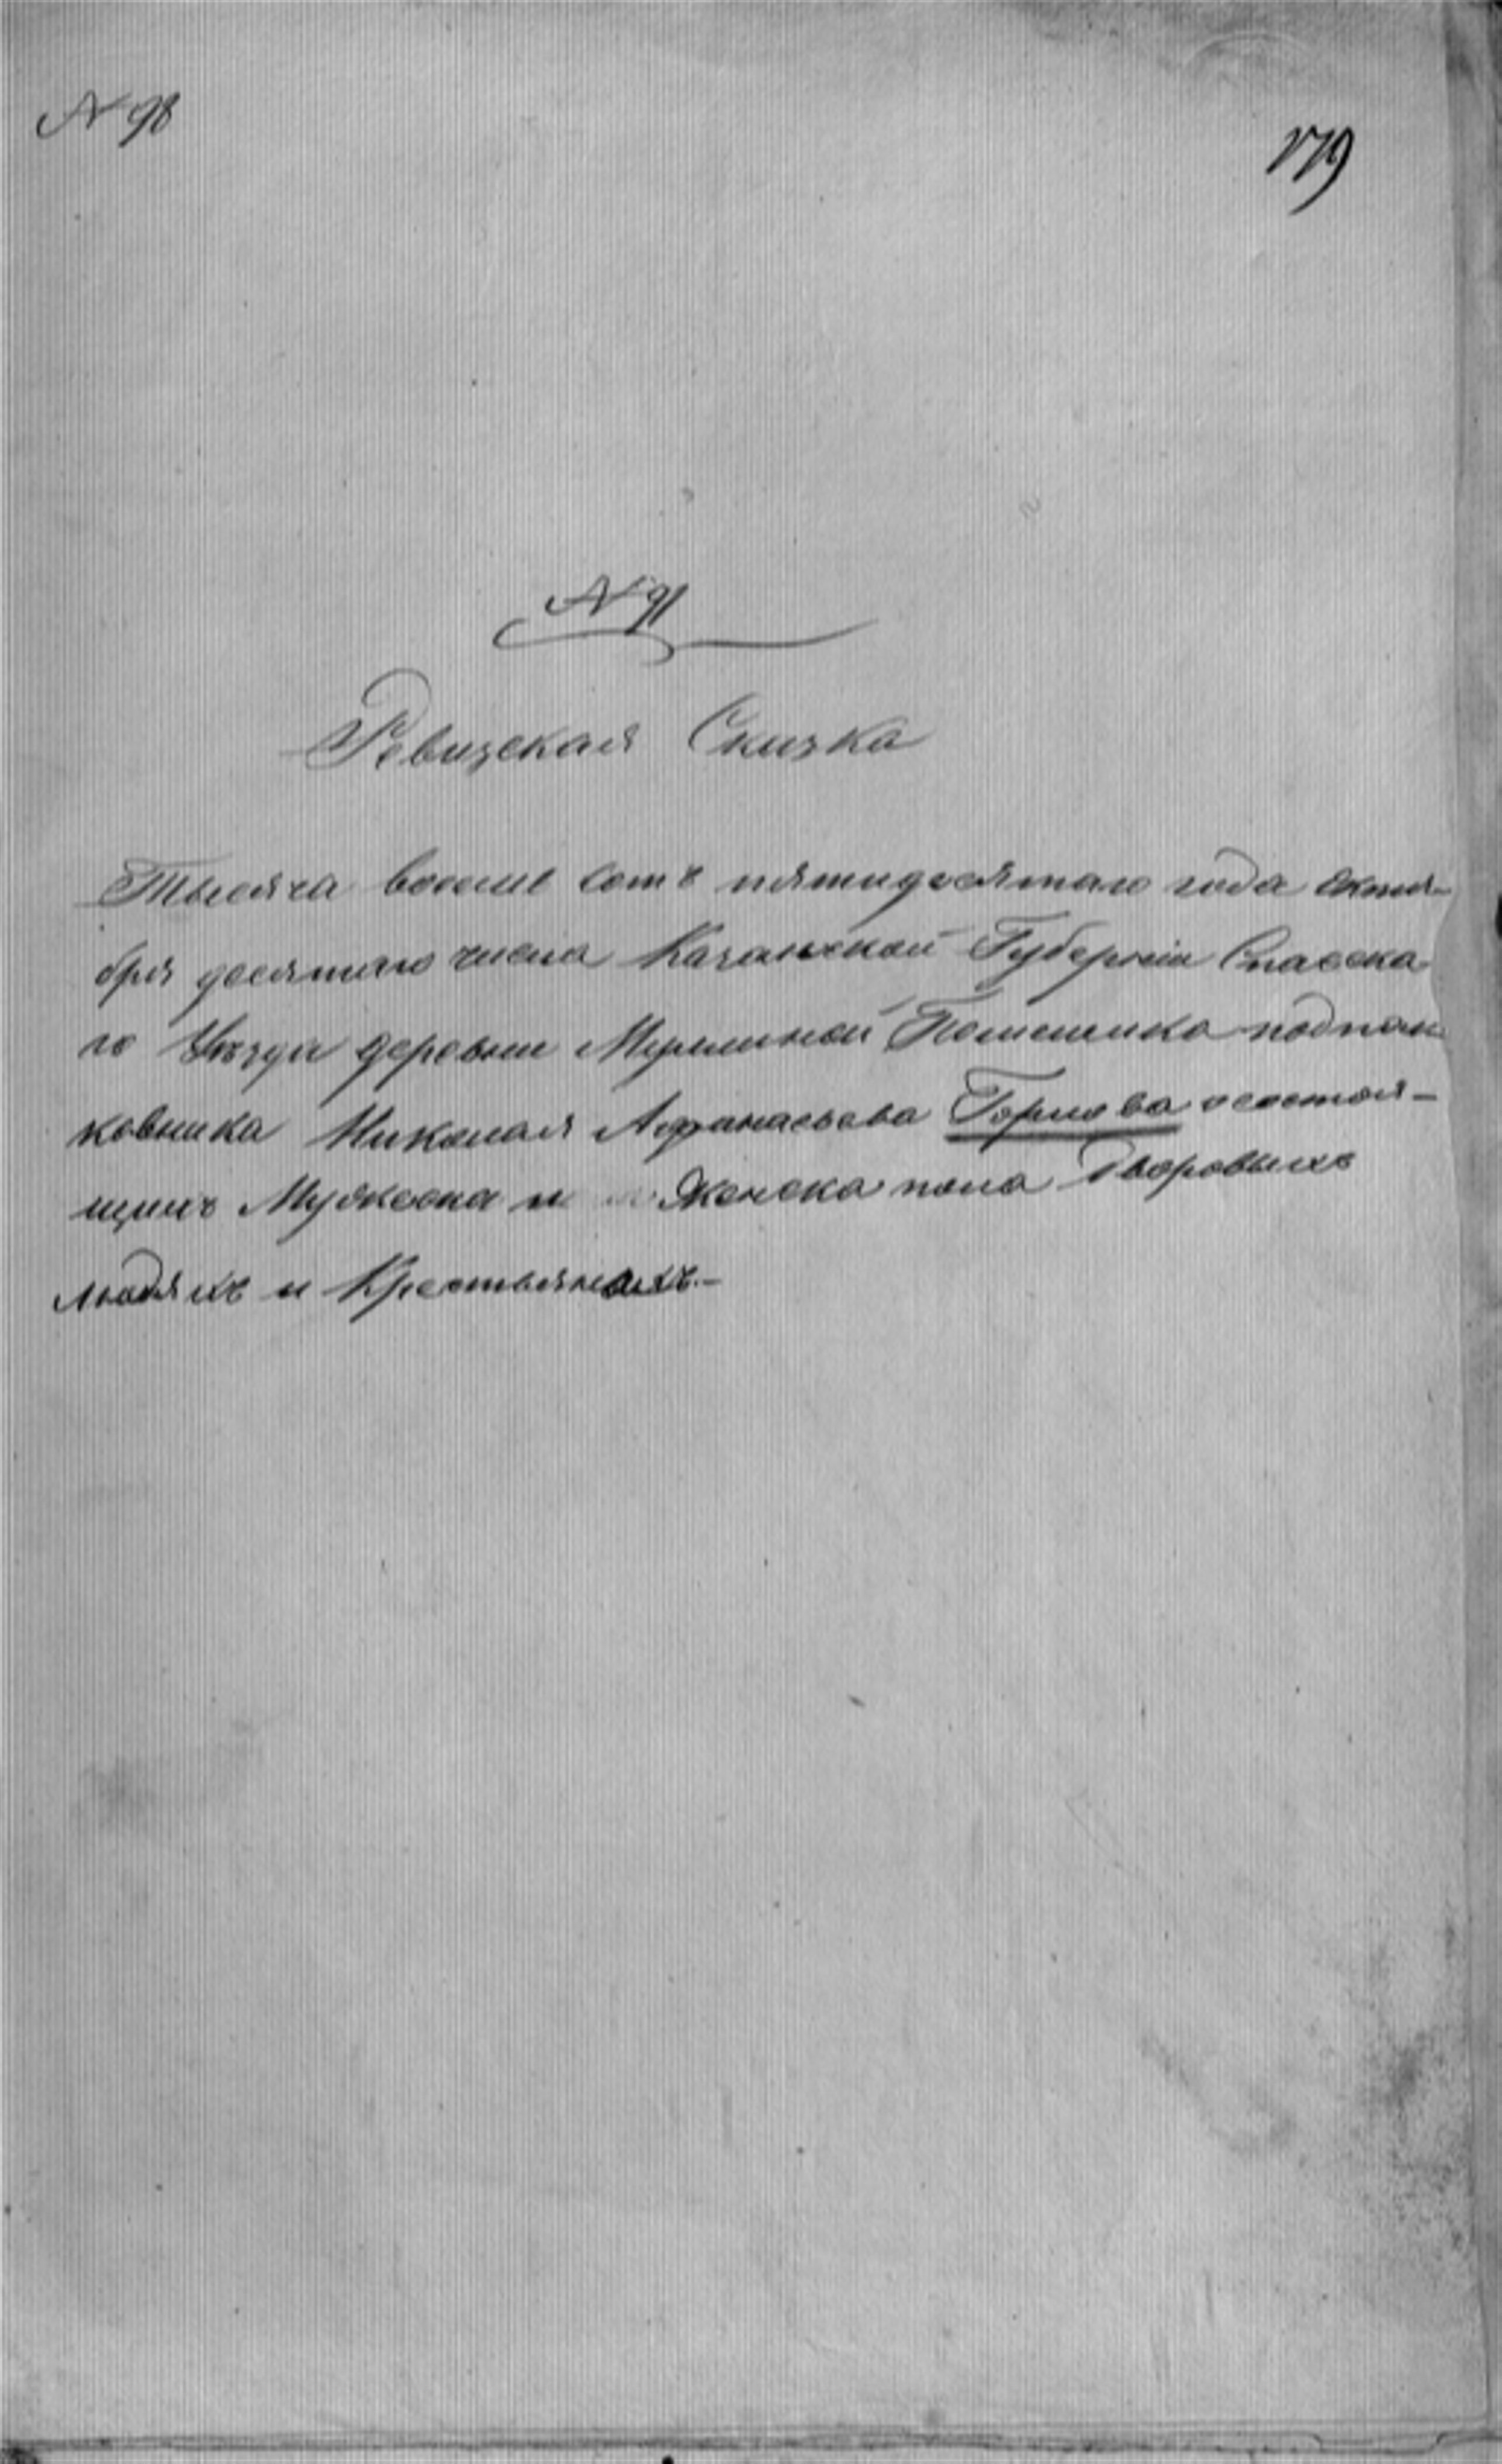 N 98
179
N 91
Ревизская Сказка
Тысяча восемь сотъ пятидесятаго года Октя-
бря десятаго числа Казанской Губерніи Спасска-
го Уѣзда деревни Мурзиной Помещика подпол-
ковника Николая Афанасьева Горлова о состоя-
щихъ Мужеска и Женска пола Дворовыхъ
людяхъ и Крестьянахъ.-